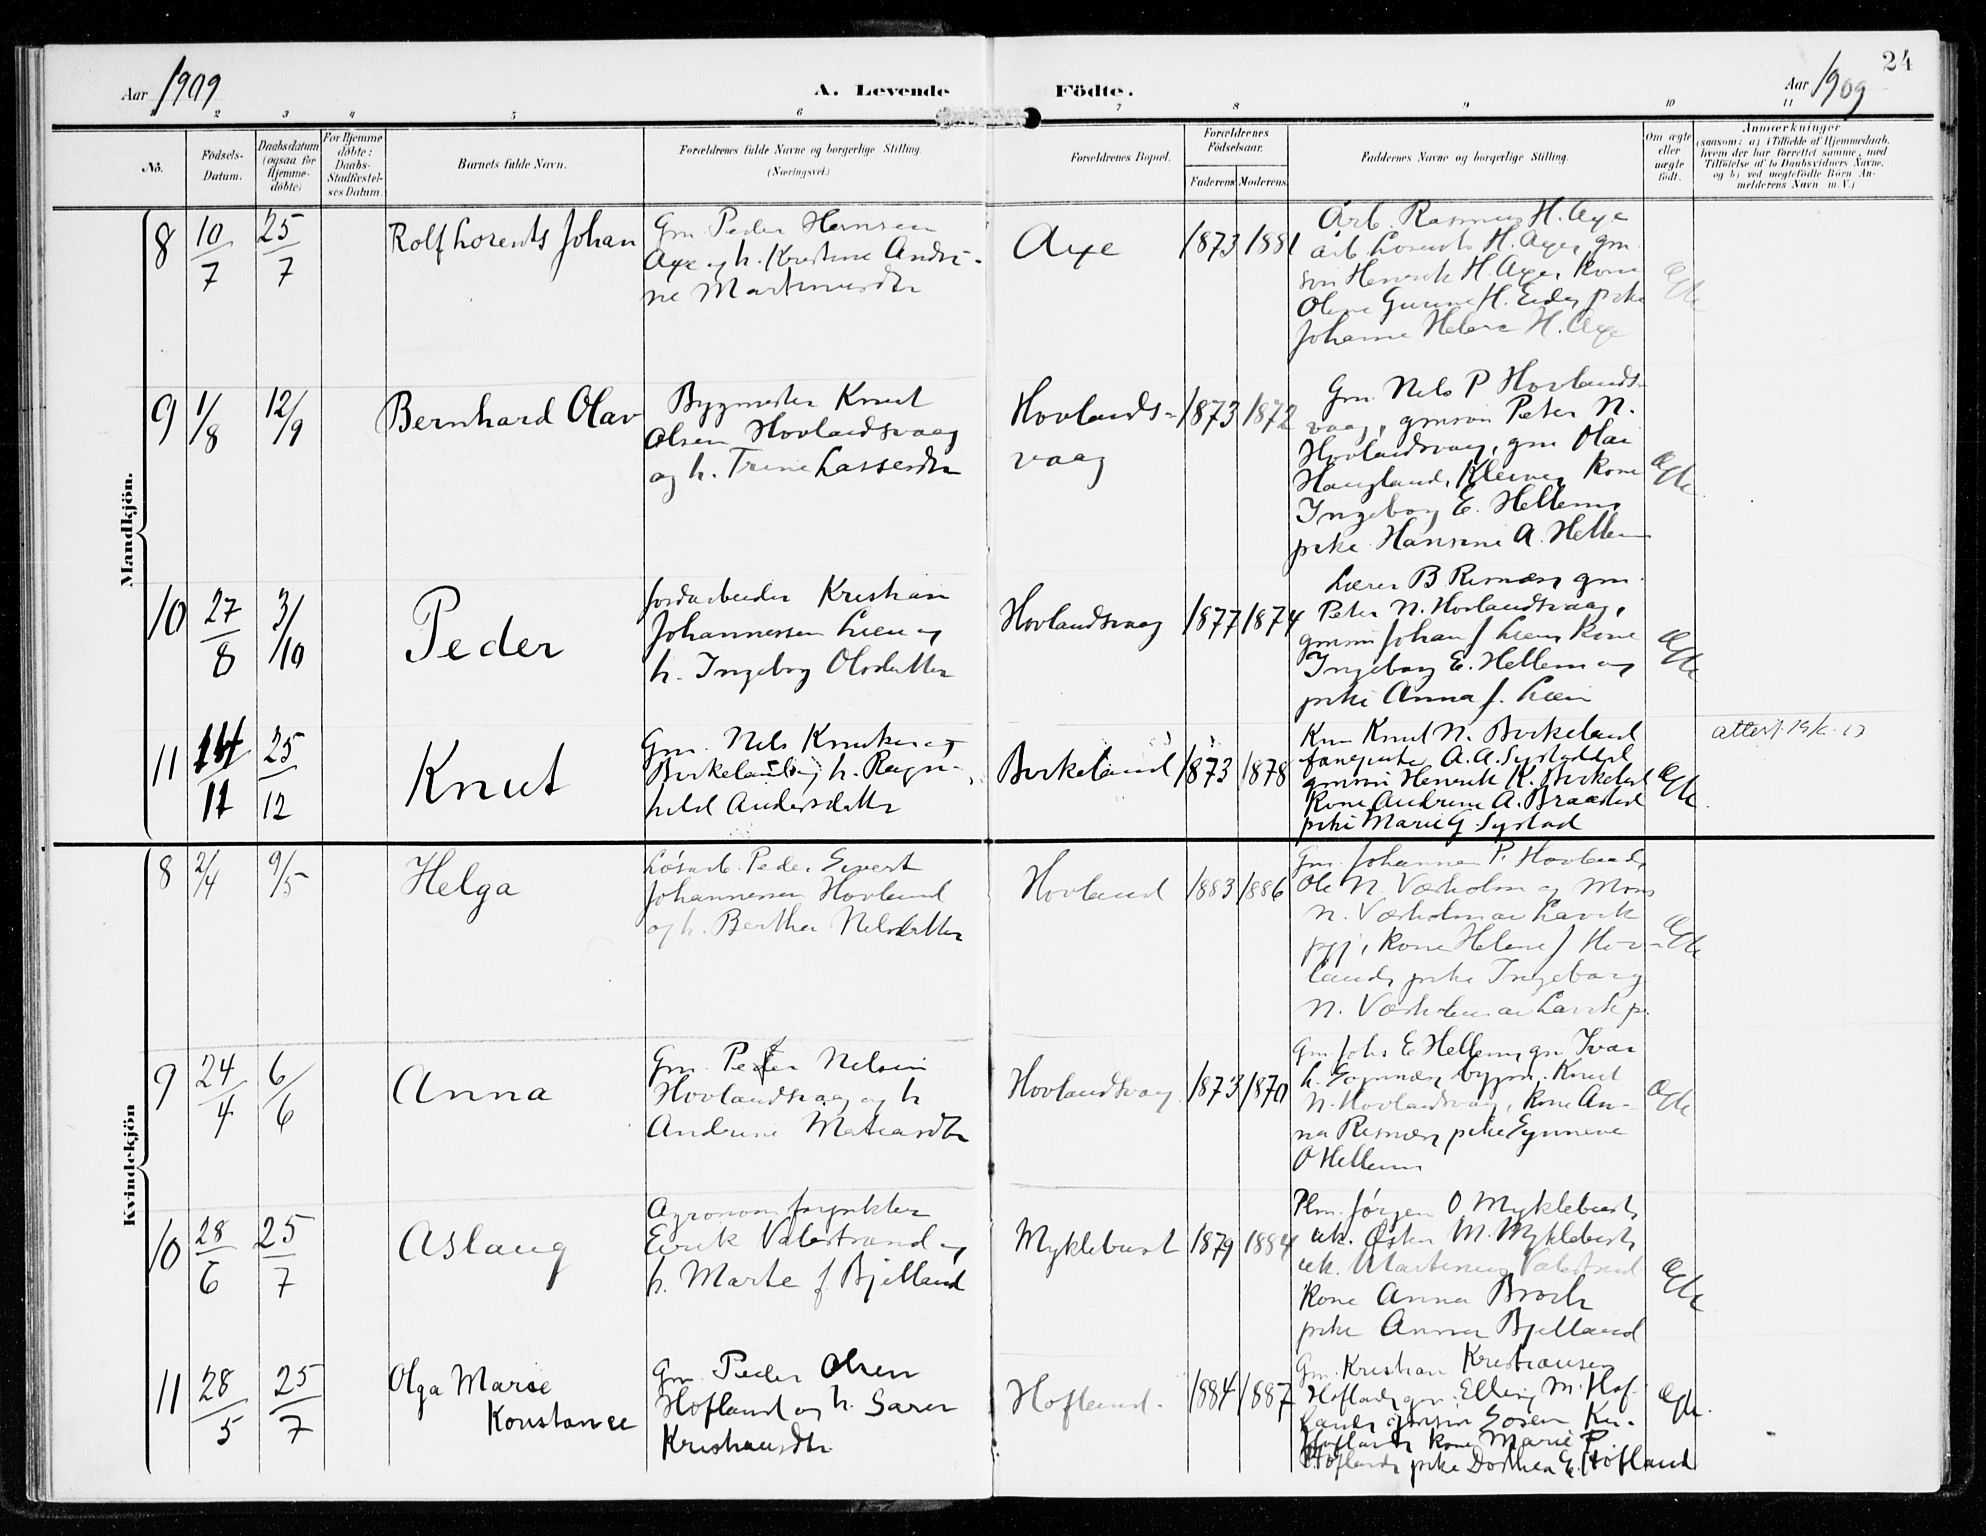 24
Aar 1909 A. Levende Födte. Aar 1909
1 2 3 4 5 6 7 8 9 10 11
No. Födsels-Datum. Daabsdatum (ogsaa for Hjemmedöbte) For Hjemmedöbte: Daabs-Stadfæstelses Datum. Barnets fulde Navn. Forældrenes fulde Navne og borgerlige Stilling. (Næringsvei.) Forældrenes Bopæl. Forældrenes Födselsaar. Faderens Moderens Faddernes Navne og borgerlige Stilling. Om ægte eller uægte födt. Anmærkninger
(saasom: a) i Tilfælde af Hjemmedaab, hvem der har forrettet samme, med Tilföielse af to Daabsvidners Navne, og b) ved uægtefödte Börn Anmelderens Navn m. V.)
Mandkjön.
8 10/7 25/7 Rolf Lorents Johan
Gm. Peder Hansen
Axe og h. Kristine Andri-
ne Martinusdtr
Axe 1873 1881
Arb. Rasmus H. Axe
arb. Lorents H. Axe, gm
søn Henrik H. Axe, Kone
Oline Gurine H. Eide, pike
Johanne Helene H. Axe
Ægte
9 1/8 12/9 Bernhard Olav
Bygmester Knut
Olsen Hovlandsvaag
og h. Trine Lassesdtr
Hovlands-
vaag
1873 1872
Gm. Nils P Hovlands-
vaag, gmsøn Peter N.
Hovlandsvaag, gm Olai
Haugland, Kleiven Kone
Ingeborg E. Hellem,
pike Hansine A. Hellem
Ægte
10 27/8 3/10 Peder
Jordarbeider Kristian
Johannessen Lien og
h. Ingeborg Olsdatter
Hovlandsvaag 1877 1874
Lærer B Risnæs, gm.
Peter N. Hovlandsvaag,
gmsøn Johan J. Lien, Kone
Ingeborg E. Hellem og
pike Anna J. Lien
Ægte
11 14/11 25/12 Knut
Gm. Nils Knutsen
Birkeland og h. Ragn-
hild Andersdatter
Birkeland 1873 1878
Knut N. Birkeland
A. A. Systaddal
gmsøn Henrik K. Birkeland
Kone Andrine A. Braasted
pike Marie G. Systad
Ægte
attest
Kvindekjön
8 2/4 9/5 Helga
Løsarb. Peder Sivert
Johannessen Hovland
og h. Berthe Nilsdatter
Hovland 1883 1886
Gm. Johannes P. Hovland,
Ole N. Værholm og Mons
N. Værholm av Lavik
pgj, Kone Helene J. Hov-
land, pike Ingeborg
N. Værholm av Lavik p.
Ægte
9 24/4 6/6 Anna
Gm. Peter Nilsen
Hovlandsvaag og h
Andrine Matiasdtr
Hovlandsvaag 1873 1870
Gm. Johs E. Hellem, gm. Ivar
L. Sognnæs, bygm. Knut
N. Hovlandsvaag, Kone An-
na Risnæs, pike Synneve
O Hellem
Ægte
10 28/6 25/7 Aslaug
Agronom
Eirik Valestrand og
h. Marte f. Bjelland
Myklebust 1879 1884
Plm. Jørgen O Myklebust,
uk. Østen M. Myklebust,
uk. Martinus Valestrand
Kone Anna Broch
pike Anna Bjelland
Ægte
11 28/5 25/7 Olga Marie
Konstance
Gm. Peder Olsen
Hofland og h. Søren
Kristiansdtr
Hofland. 1884 1887
Gm. Kristian Kristiansen
Hofland, gm. Elling M. Hof-
land, gmsøn Søren Kr.
Hofland, kone Marie P.
Hofland, pike Dorthea E. Hofland
Ægte.